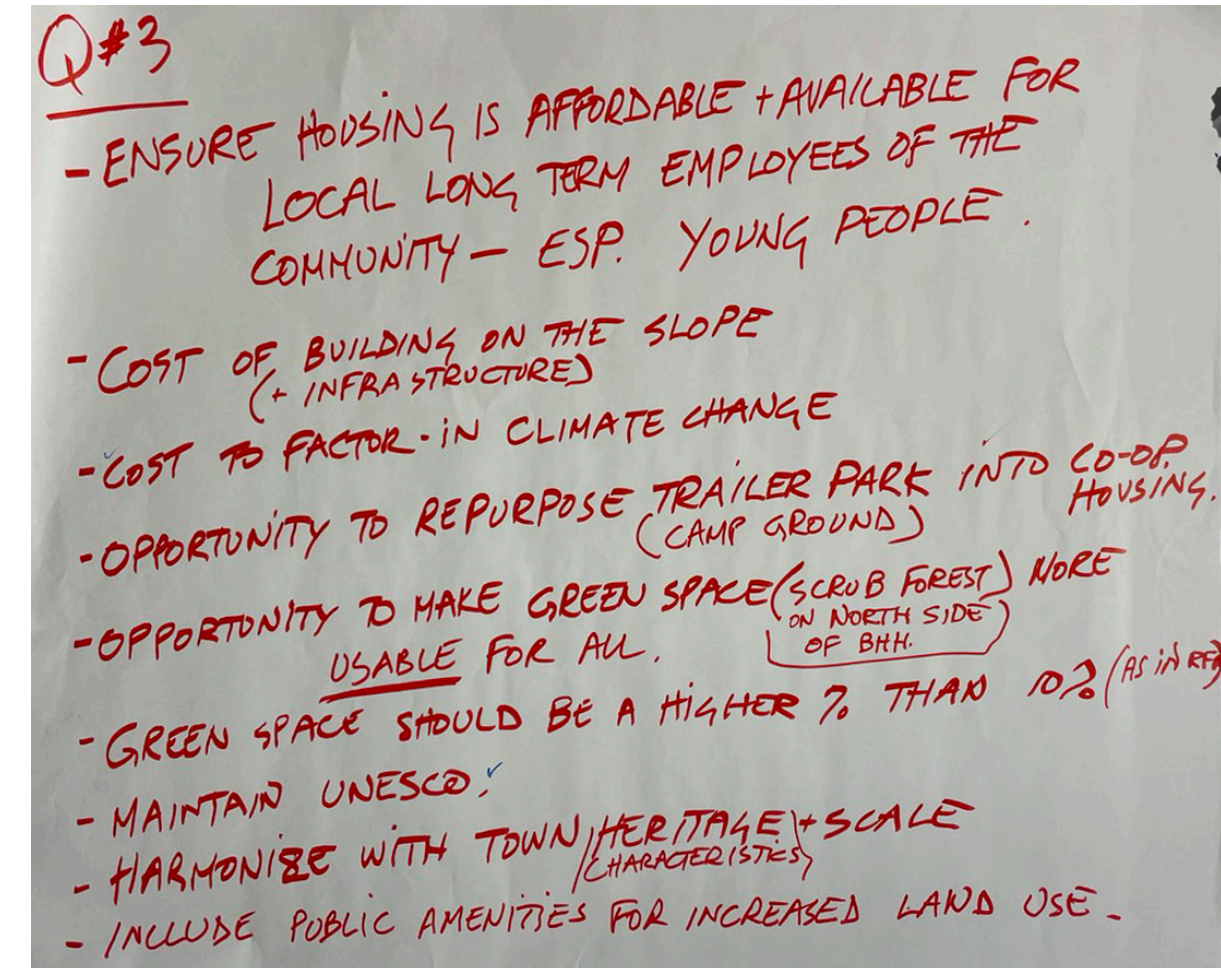 Q#3
- ENSURE HOUSING IS AFFORDABLE + AVAILABLE FOR
LOCAL LONG TERM EMPLOYEES OF THE
COMMUNITY - ESP. YOUNG PEOPLE.
- COST OF BUILDING ON THE SLOPE
(+ INFRASTRUCTURE)
- COST TO FACTOR-IN CLIMATE CHANGE
- OPPORTUNITY TO REPURPOSE TRAILER PARK INTO CO-OP
(CAMP GROUND) HOUSING.
- OPPORTUNITY TO MAKE GREEN SPACE (SCRUB FOREST) MORE
ON NORTH SIDE
USABLE FOR ALL. OF BHH.
- GREEN SPACE SHOULD BE A HIGHER % THAN 10% (AS IN
- MAINTAIN UNESCO.
- HARMONIZE WITH TOWN (HERITAGE) + SCALE
(CHARACTERISTICS)
- INCLUDE PUBLIC AMENITIES FOR INCREASED LAND USE.